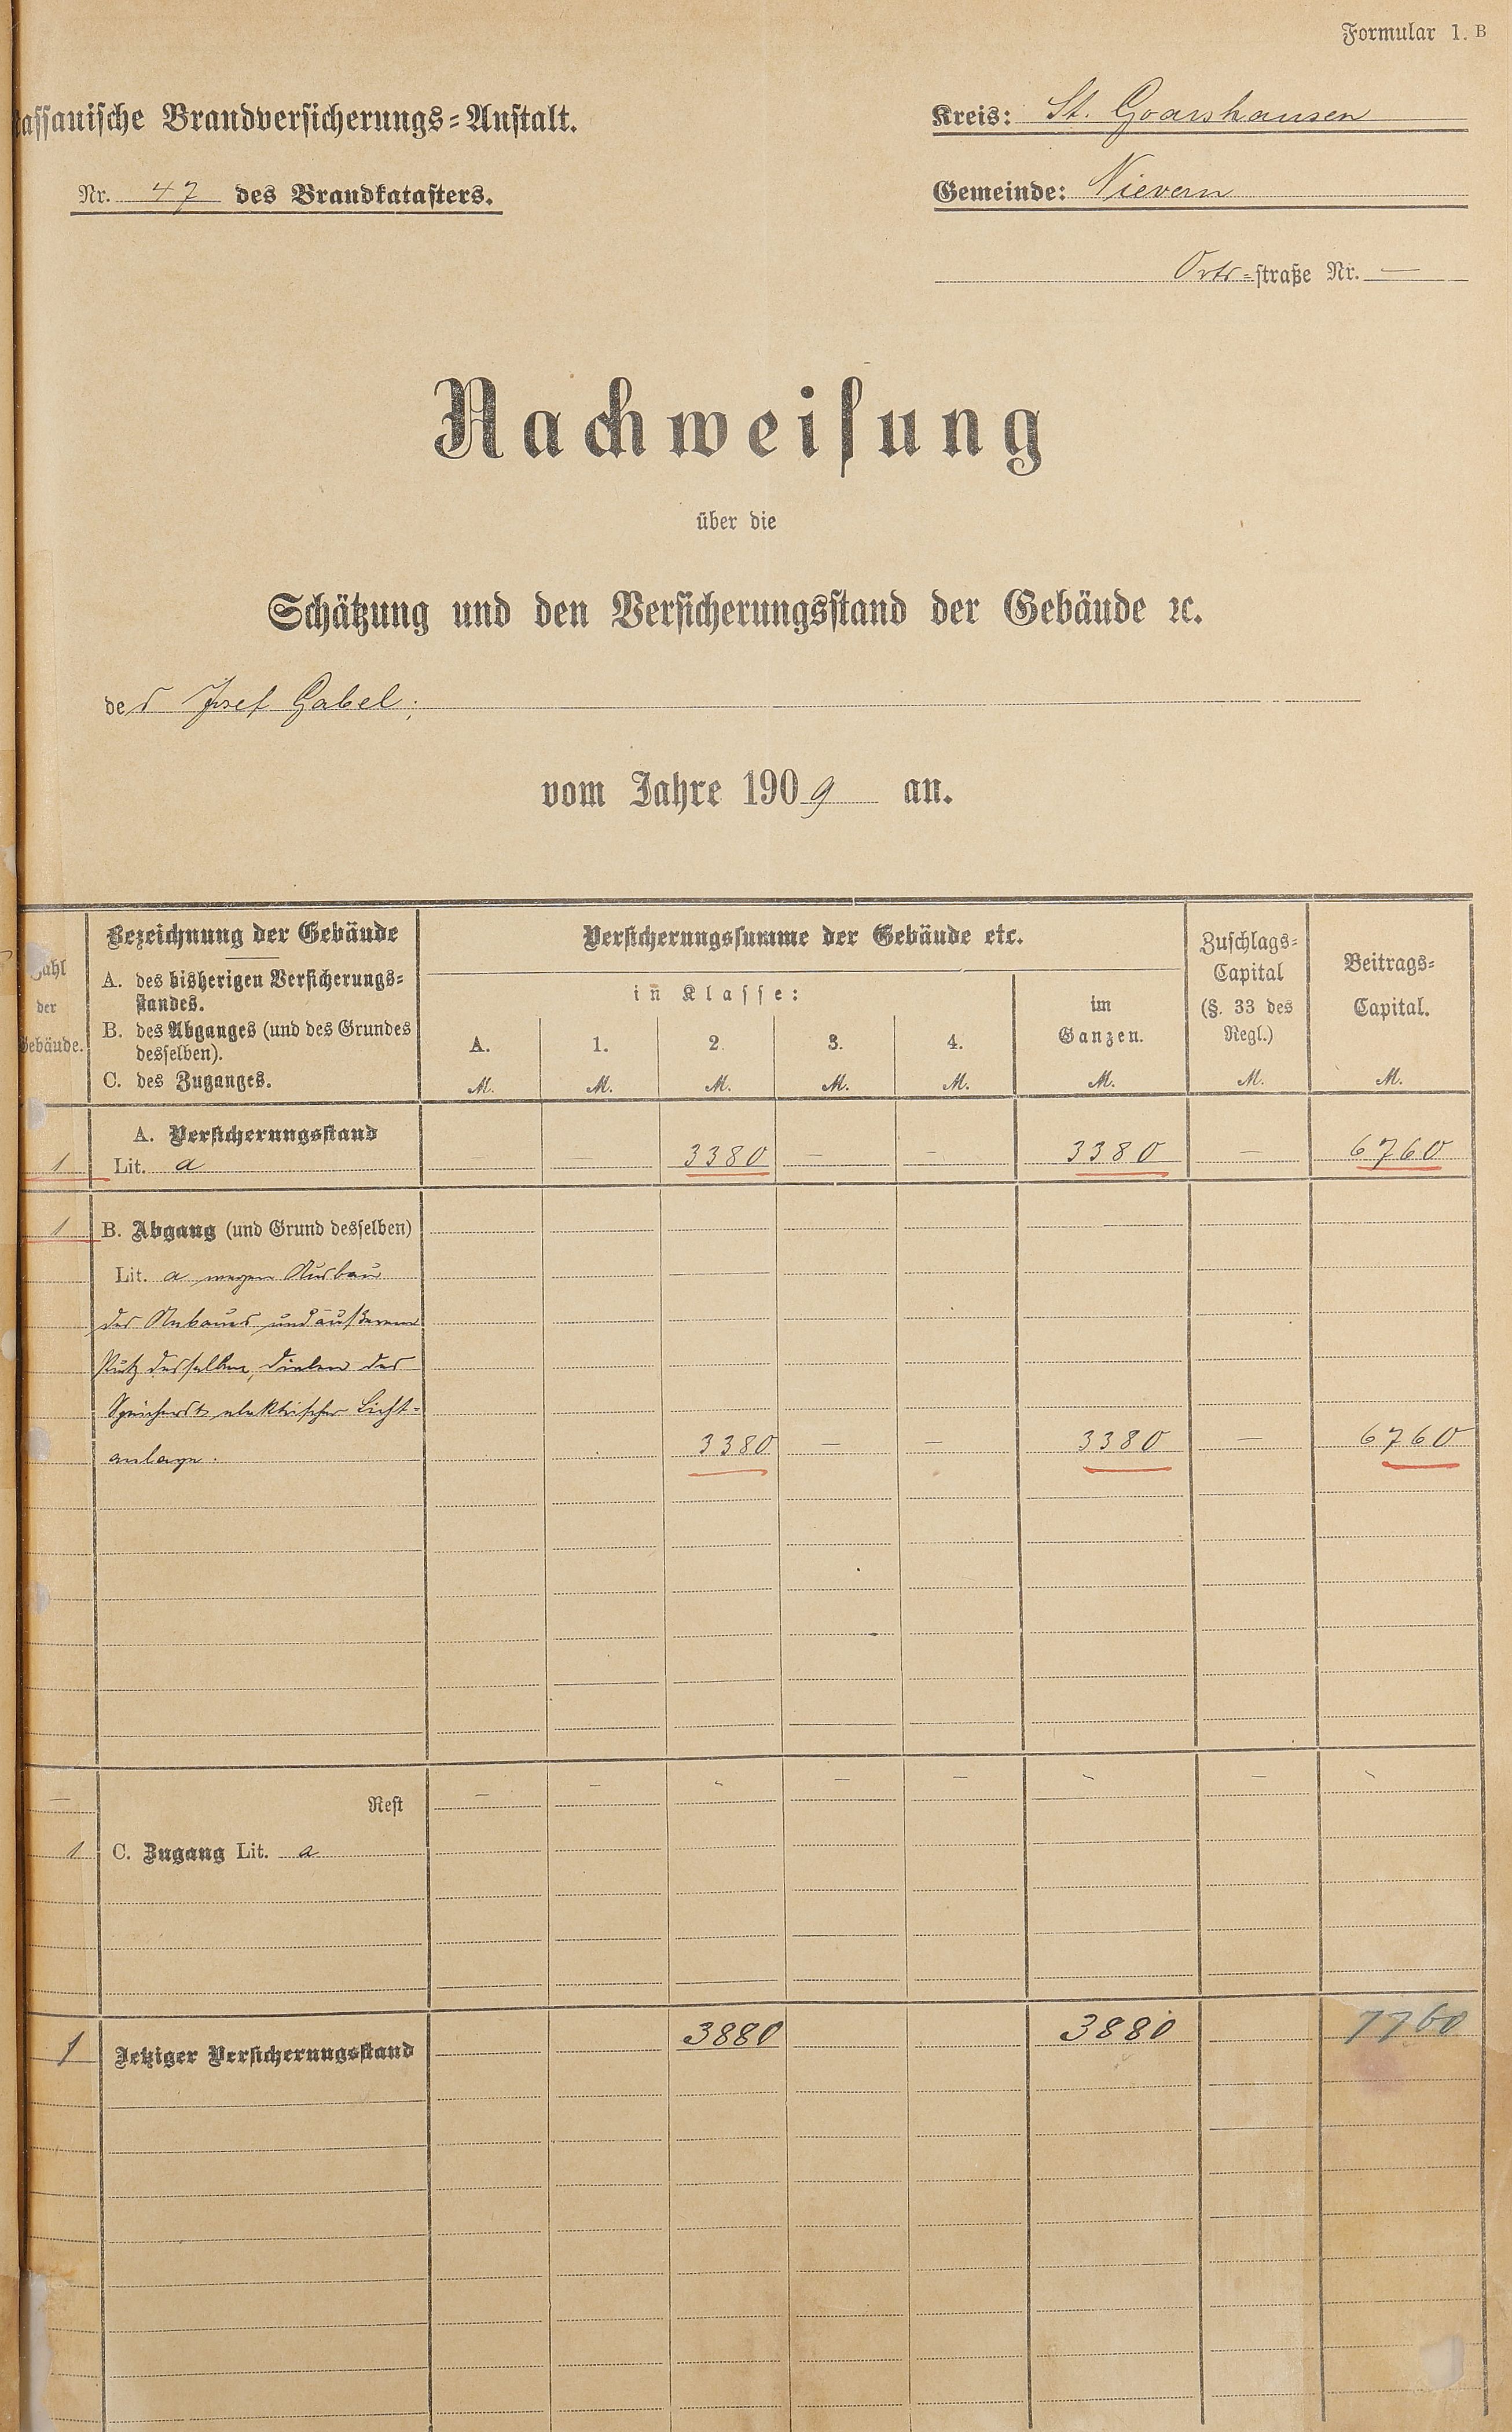 Formular 1. B
assauische Brandversicherungs=Anstalt.
Kreis: St. Goarshausen
Nr. 47 des Brandkatasters.
Gemeinde: Nievern
Orts=straße Nr. —
Nachweisung
über die
Schätzung und den Versicherungsstand der Gebäude ꝛc.
des Josef Gabel;
vom Jahre 1909 an.
Zahl der Gebäude.
Bezeichnung der Gebäude
A. des bisherigen Versicherungs=
standes.
B. des Abganges (und des Grundes
desselben).
C. des Zuganges.
Versicherungssumme der Gebäude etc.
in Klasse:
A. 1. 2. 3. 4.
im
Ganzen.
Zuschlags=
Capital
(§. 33 des
Regl.)
Beitrags=
Capital.
M. M. M. M. M. M. M. M.
A. Versicherungsstand
1 Lit. a — 3380 — — 3380 — 6760
1 B. Abgang (und Grund desselben)
Lit. a wegen Ausbau
des Anbaues und äußerem
Putz desselben, Dielen des
Speichers elektrischer Licht=
anlage. 3380 — — 3380 — 6760
— Rest — — — — — — — —
1 C. Zugang Lit. a
1 Jetziger Versicherungsstand 3880 3880 7760